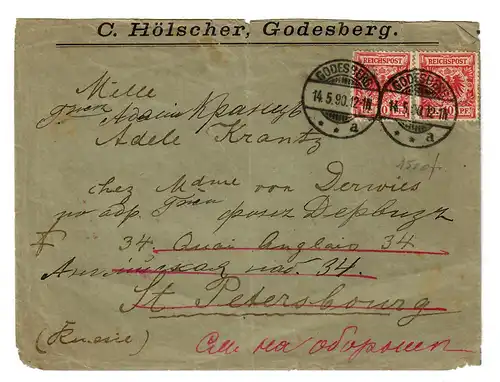 C. Hölscher, Godesberg.
REICHSPOST REICHSPOST
GODESBERG GODESBERG
14.5.90.12-1N 14.5.90.12-1N
10 PF.
a a
Melle
Адели Кранцъ
Adele Krantz
chez Mdme von Derwies
по адр. Гжи фонъ Дервизъ
34 Quai Anglais 34
Английская наб. 34.
St Petersbourg
(Russie)
См. на оборотѣ